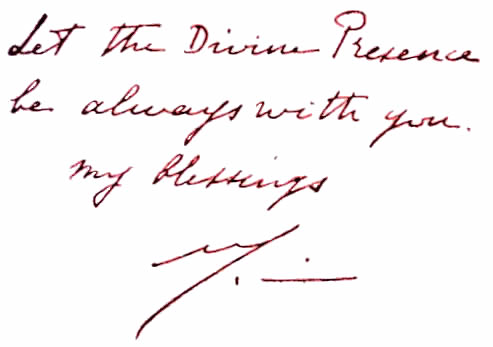 Let the Divine Presence
be always with you.
my blessings